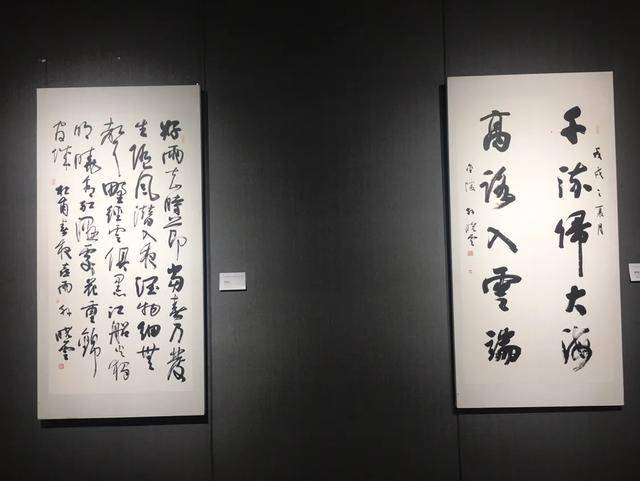 好雨知時節當春乃發
生隨風潛入夜潤物細無
聲野徑雲俱黑江船火獨
明曉看紅濕處花重錦
官城 杜甫春夜喜雨 孫曉雲
戊戌之夏月
千流歸大海
高路入雲端
金陵 孫曉雲